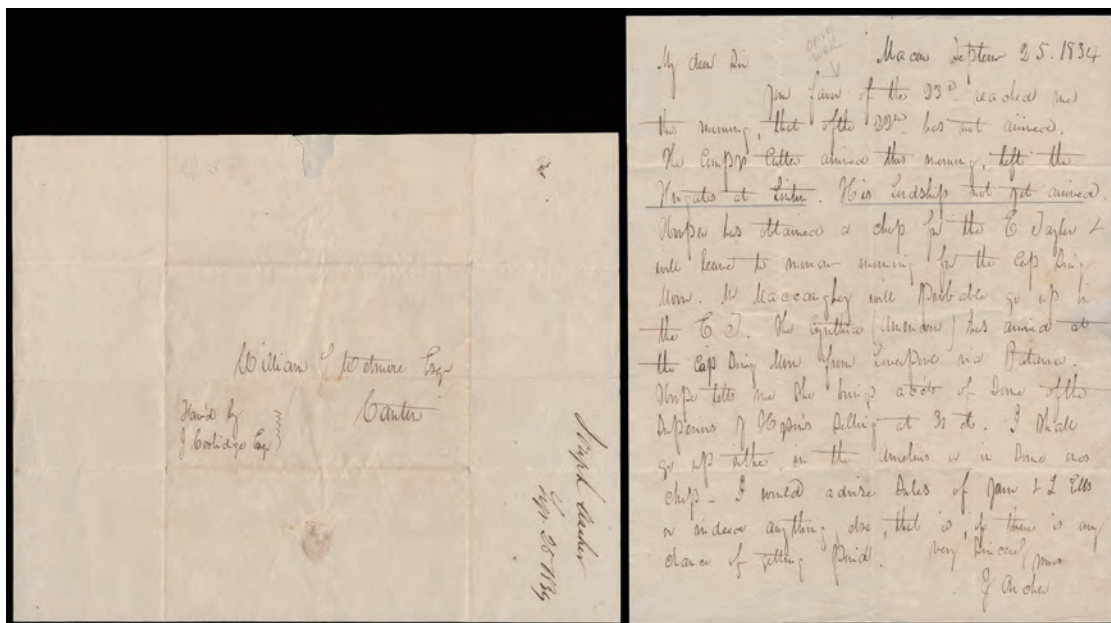 William S Wetmore Esqr
Canton
Fav'd by
J Coolidge Esqr
Joseph Archer
Sep. 25 1834
OPIUM
WAR
Macao Septemr 25. 1834
My dear Sir
Your favor of the 23d. reached me
this morning, that of the 22nd. has not arrived.
The Compys Cutter arrived this morning, left the
Frigates at Lintin. His Lordship not yet arrived.
has obtained a chop for the E Taylor &
will leave to morrow morning for the Cap Sing
Moon. Mr Maccaughey will probable go up in
the E T. The Cynthia (American) has arrived at
the Cap Sing Moon from Liverpool via Batavia.
tells me she brings accts of some of the
of selling at I shall
go up either in the or in some
chop - I would advise Sales of Yarn & L Ells
or indeed anything else, that is, if there is any
chance of getting paid. Very Sincerely yours
J Archer